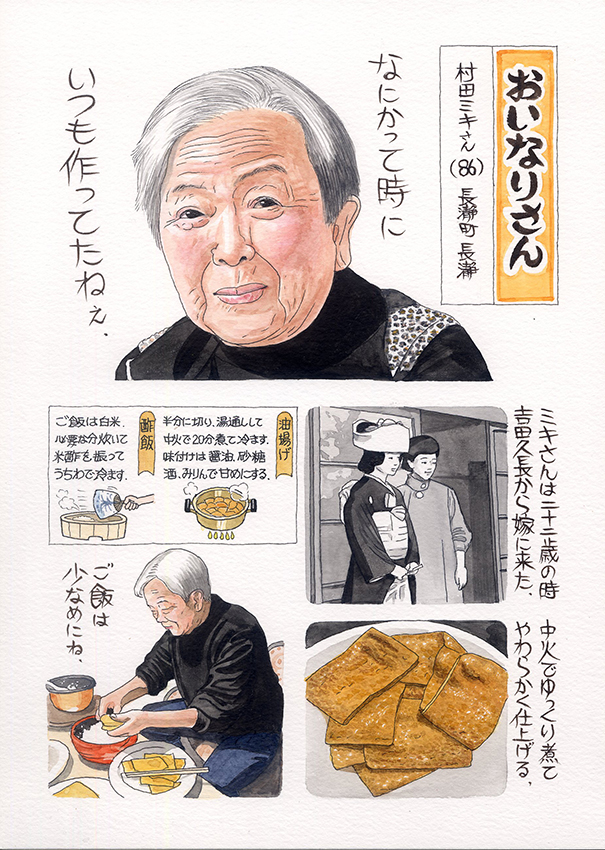 おいなりさん
村田ミキさん(86) 長瀞町 長瀞
なにかって時に
いつも作ってたねぇ.
油揚げ
半分に切り、湯通しして
中火で20分煮て冷ます.
味付けは醤油、砂糖
酒、みりんで甘めにする.
酢飯
ご飯は白米.
必要な分炊いて
米酢を振って
うちわで冷ます.
ミキさんは二十二歳の時
吉田久長から嫁に来た.
中火でゆっくり煮て
やわらかく仕上げる.
ご飯は
少なめにね.